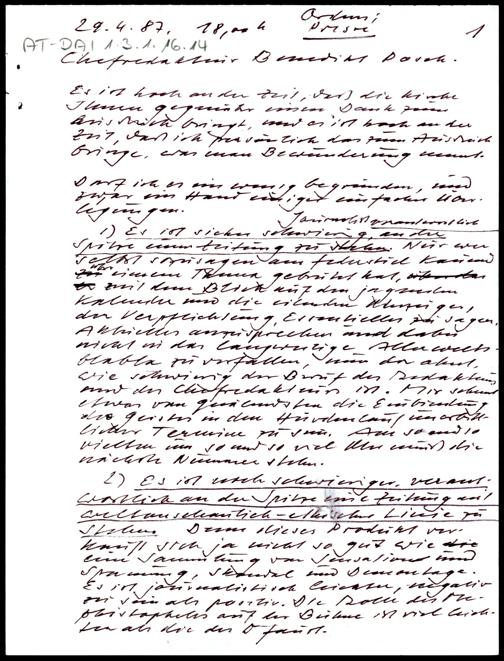 29.4.87, 18,00 h Orden;
Presse
1
AT-DAI 1.3.1.16.14
Chefredakteur Benedikt Posch.
Es ist hoch an der Zeit, daß die Kirche
Ihnen gegenüber einen Dank zum
Ausdruck bringt, und es ist hoch an der
Zeit, daß ich persönlich das zum Ausdruck
bringe, was man Bewunderung nennt.
Darf ich es ein wenig begründen, und
zwar an Hand einiger einfacher Über-
legungen.
1) Es ist sicher schwierig, an der
Spitze einer Zeitung zu stehen. Nur wer
selbst sozusagen am Federstiel kauend
einem Thema gebrütet hat,
mit dem Blick auf den jagenden
Kalender und die eilenden Uhrzeiger,
der Verpflichtung, Essentielles zu sagen,
Aktuelles anzusprechen und dabei
nicht in das langweilige Allerwelts-
blabla zu verfallen, nur der ahnt,
wie schwierig der Beruf des Redakteurs
und des Chefredakteurs ist. Mir scheint
etwas vom quälendsten die Einbindung
des Geistes in den Hürdenlauf unerbitt-
licher Termine zu sein. Am so und so
vielten um so und so viel Uhr muß die
nächste Nummer stehn.
2) Es ist noch schwieriger, verant-
wortlich an der Spitze einer Zeitung mit
weltanschaulich-ethischer Linie zu
stehen. Denn dieses Produkt ver-
kauft sich ja nicht so gut wie die
eine Sammlung von Sensation und
Spannung, Skandal und Demontage.
Es ist journalistisch leichter, negativ
zu sein als positiv. Die Rolle des Me-
phistopheles auf der Bühne ist viel leich-
ter als die des Faust.